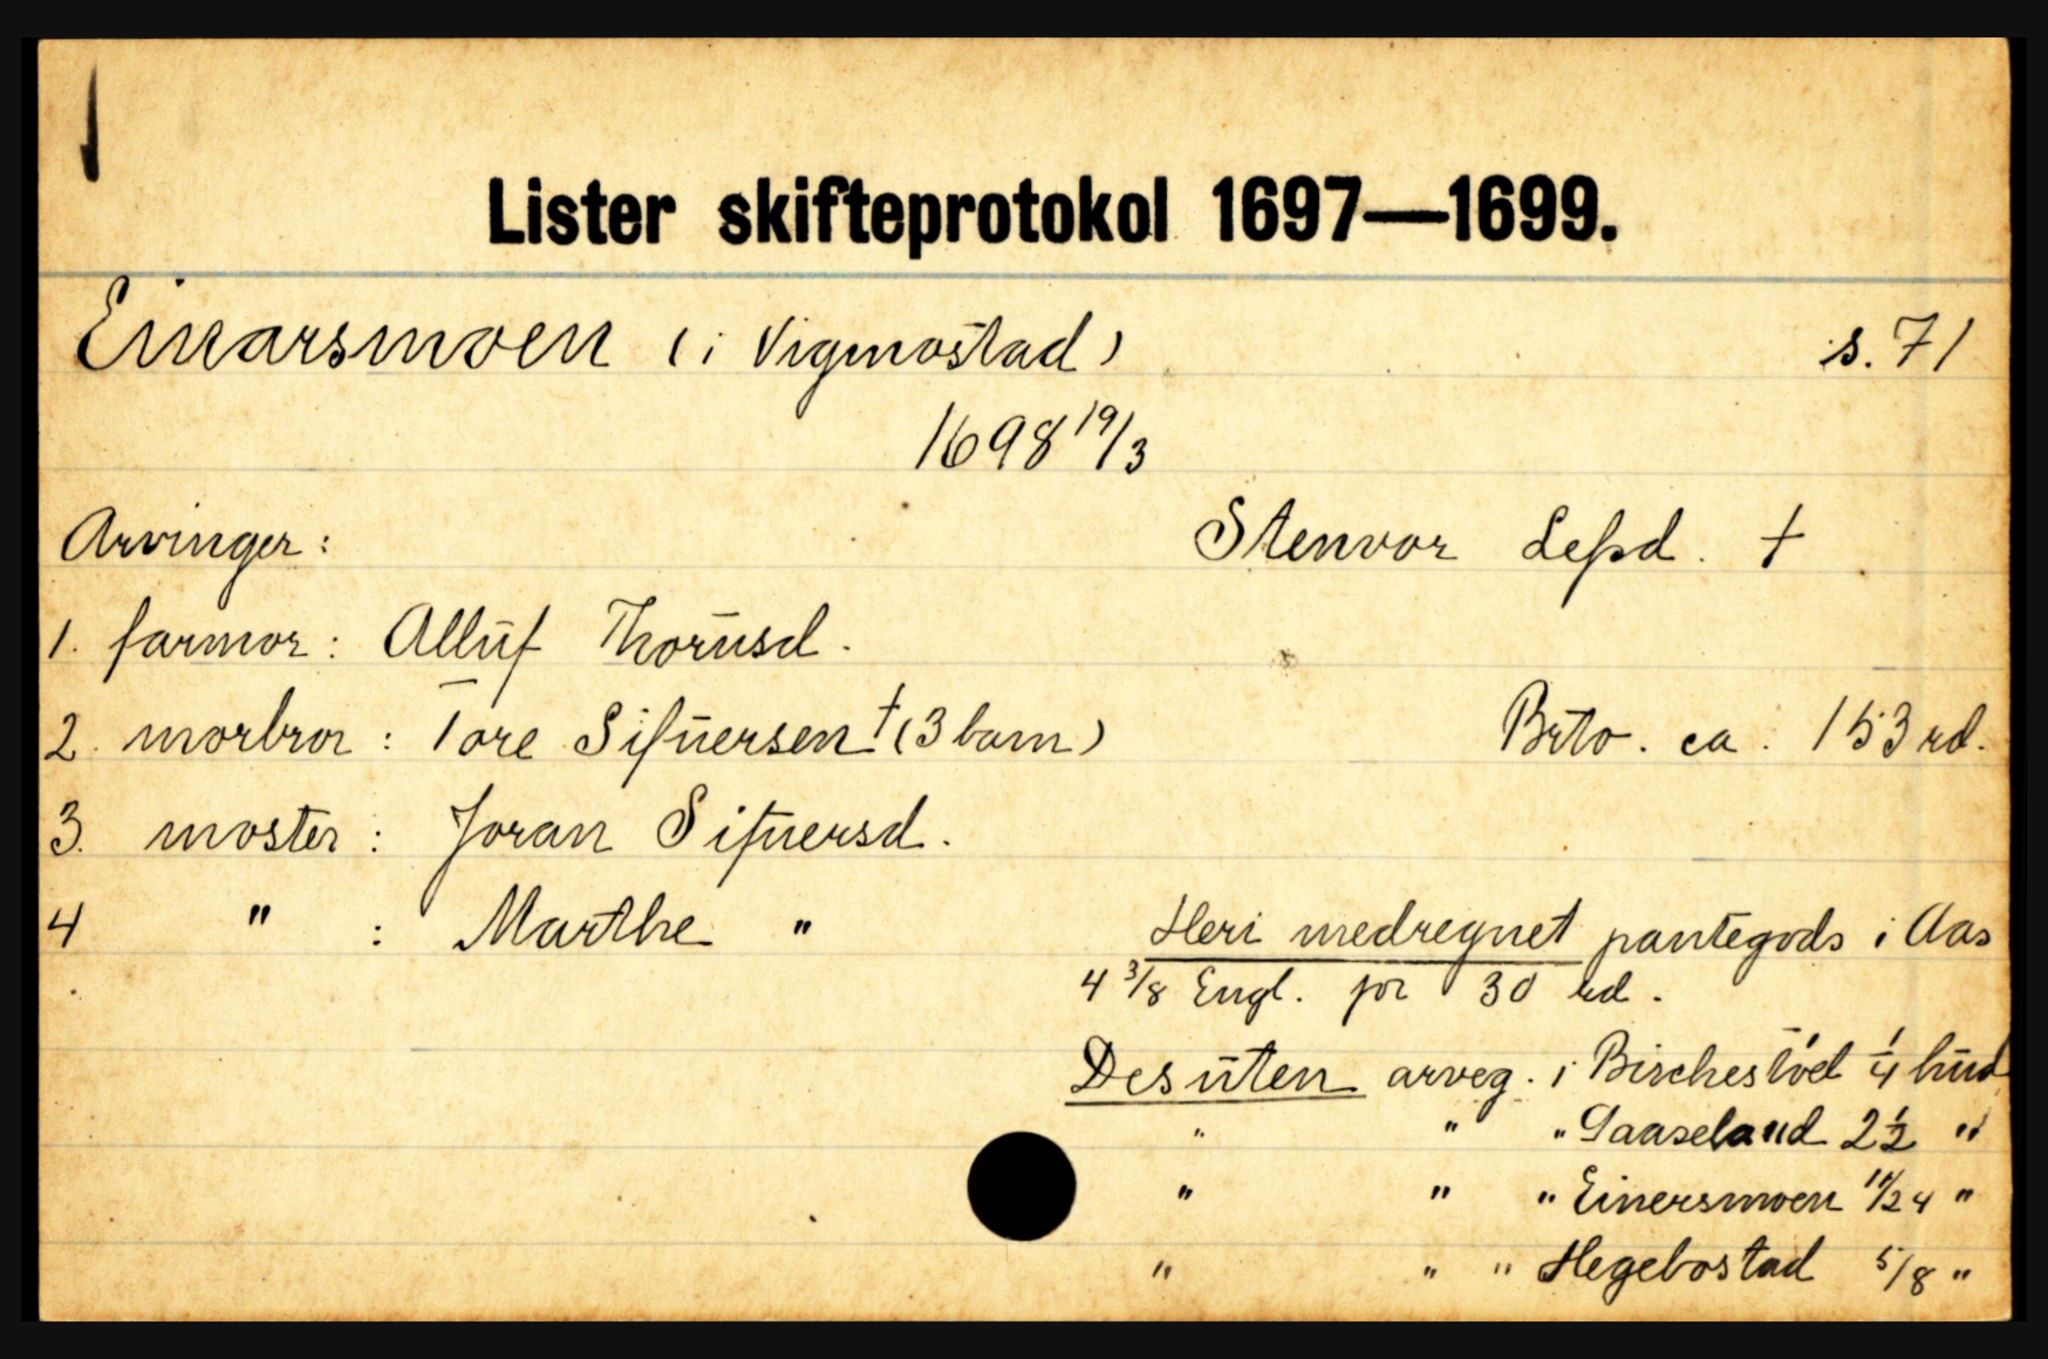 Lister skifteprotokol 1697—1699.
Einarsmoen (i Vigmostad) s. 71
1698 19/3
Arvinger: Stenvor Lefsd. †
1. farmor: Alluf Thorusd.
2. morbror: Tore Sifuersen † (3 barn) Brto. ca. 153 rd.
3. moster: Joran Sifuersd.
4 " : Marthe "
Heri medregnet pantegods i Aas
4 3/8 Engl. for 30 rd.
Desuten arveg. i Birchestöel 1/4 hud
" " " Gaaseland 2 1/2 "
" " " Einersmoen 11/24 "
" " " Hegebostad 5/8 "